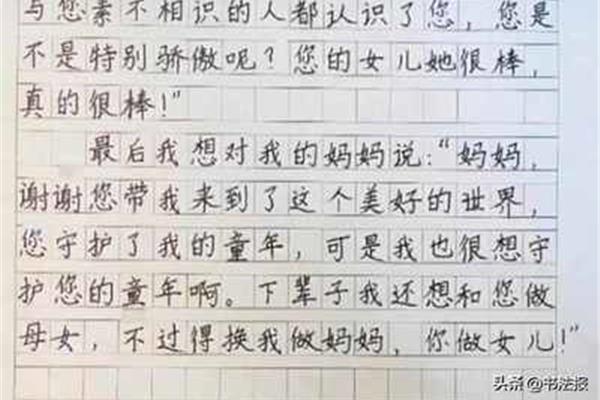 与您素不相识的人都认识了您，您是
不是特别骄傲呢？您的女儿她很棒，
真的很棒！”
最后我想对我的妈妈说：“妈妈，
谢谢您带我来到了这个美好的世界，
您守护了我的童年，可是我也很想守
护您的童年啊。下辈子我还想和您做
母女，不过得换我做妈妈，你做女儿！”
头条@书法报